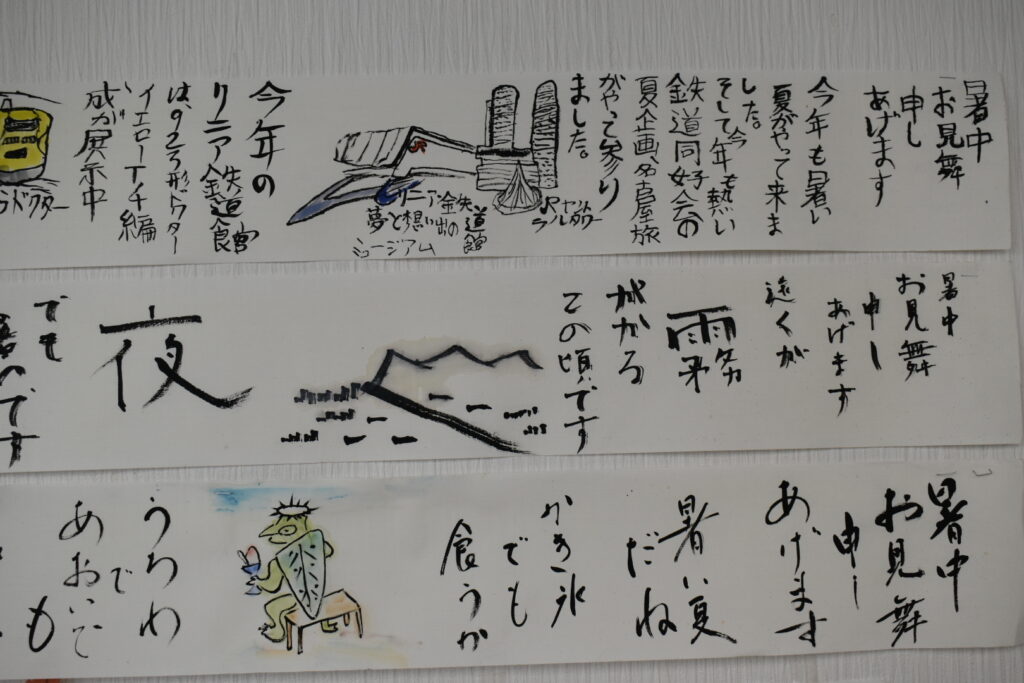 暑中
お見舞
申し
あげます
今年も暑い
夏がやって来ま
した。
そして今年も熱い
鉄道同好会の
夏企画名古屋旅
がやって参り
ました。
JRセントラル
タワー
リニア鉄道館
夢と想い出の
ミュージアム
今年の
リニア鉄道館
は、923形ドクター
イエローT4編
成が展示中
ドクター
暑中
お見舞
申し
あげます
遠くが
霧
がかる
この頃です
夜
でも
暑いです
暑中
お見舞
申し
あげます
暑い夏
だね
かき氷
でも
食うか
うちわ
で
あおいで
も